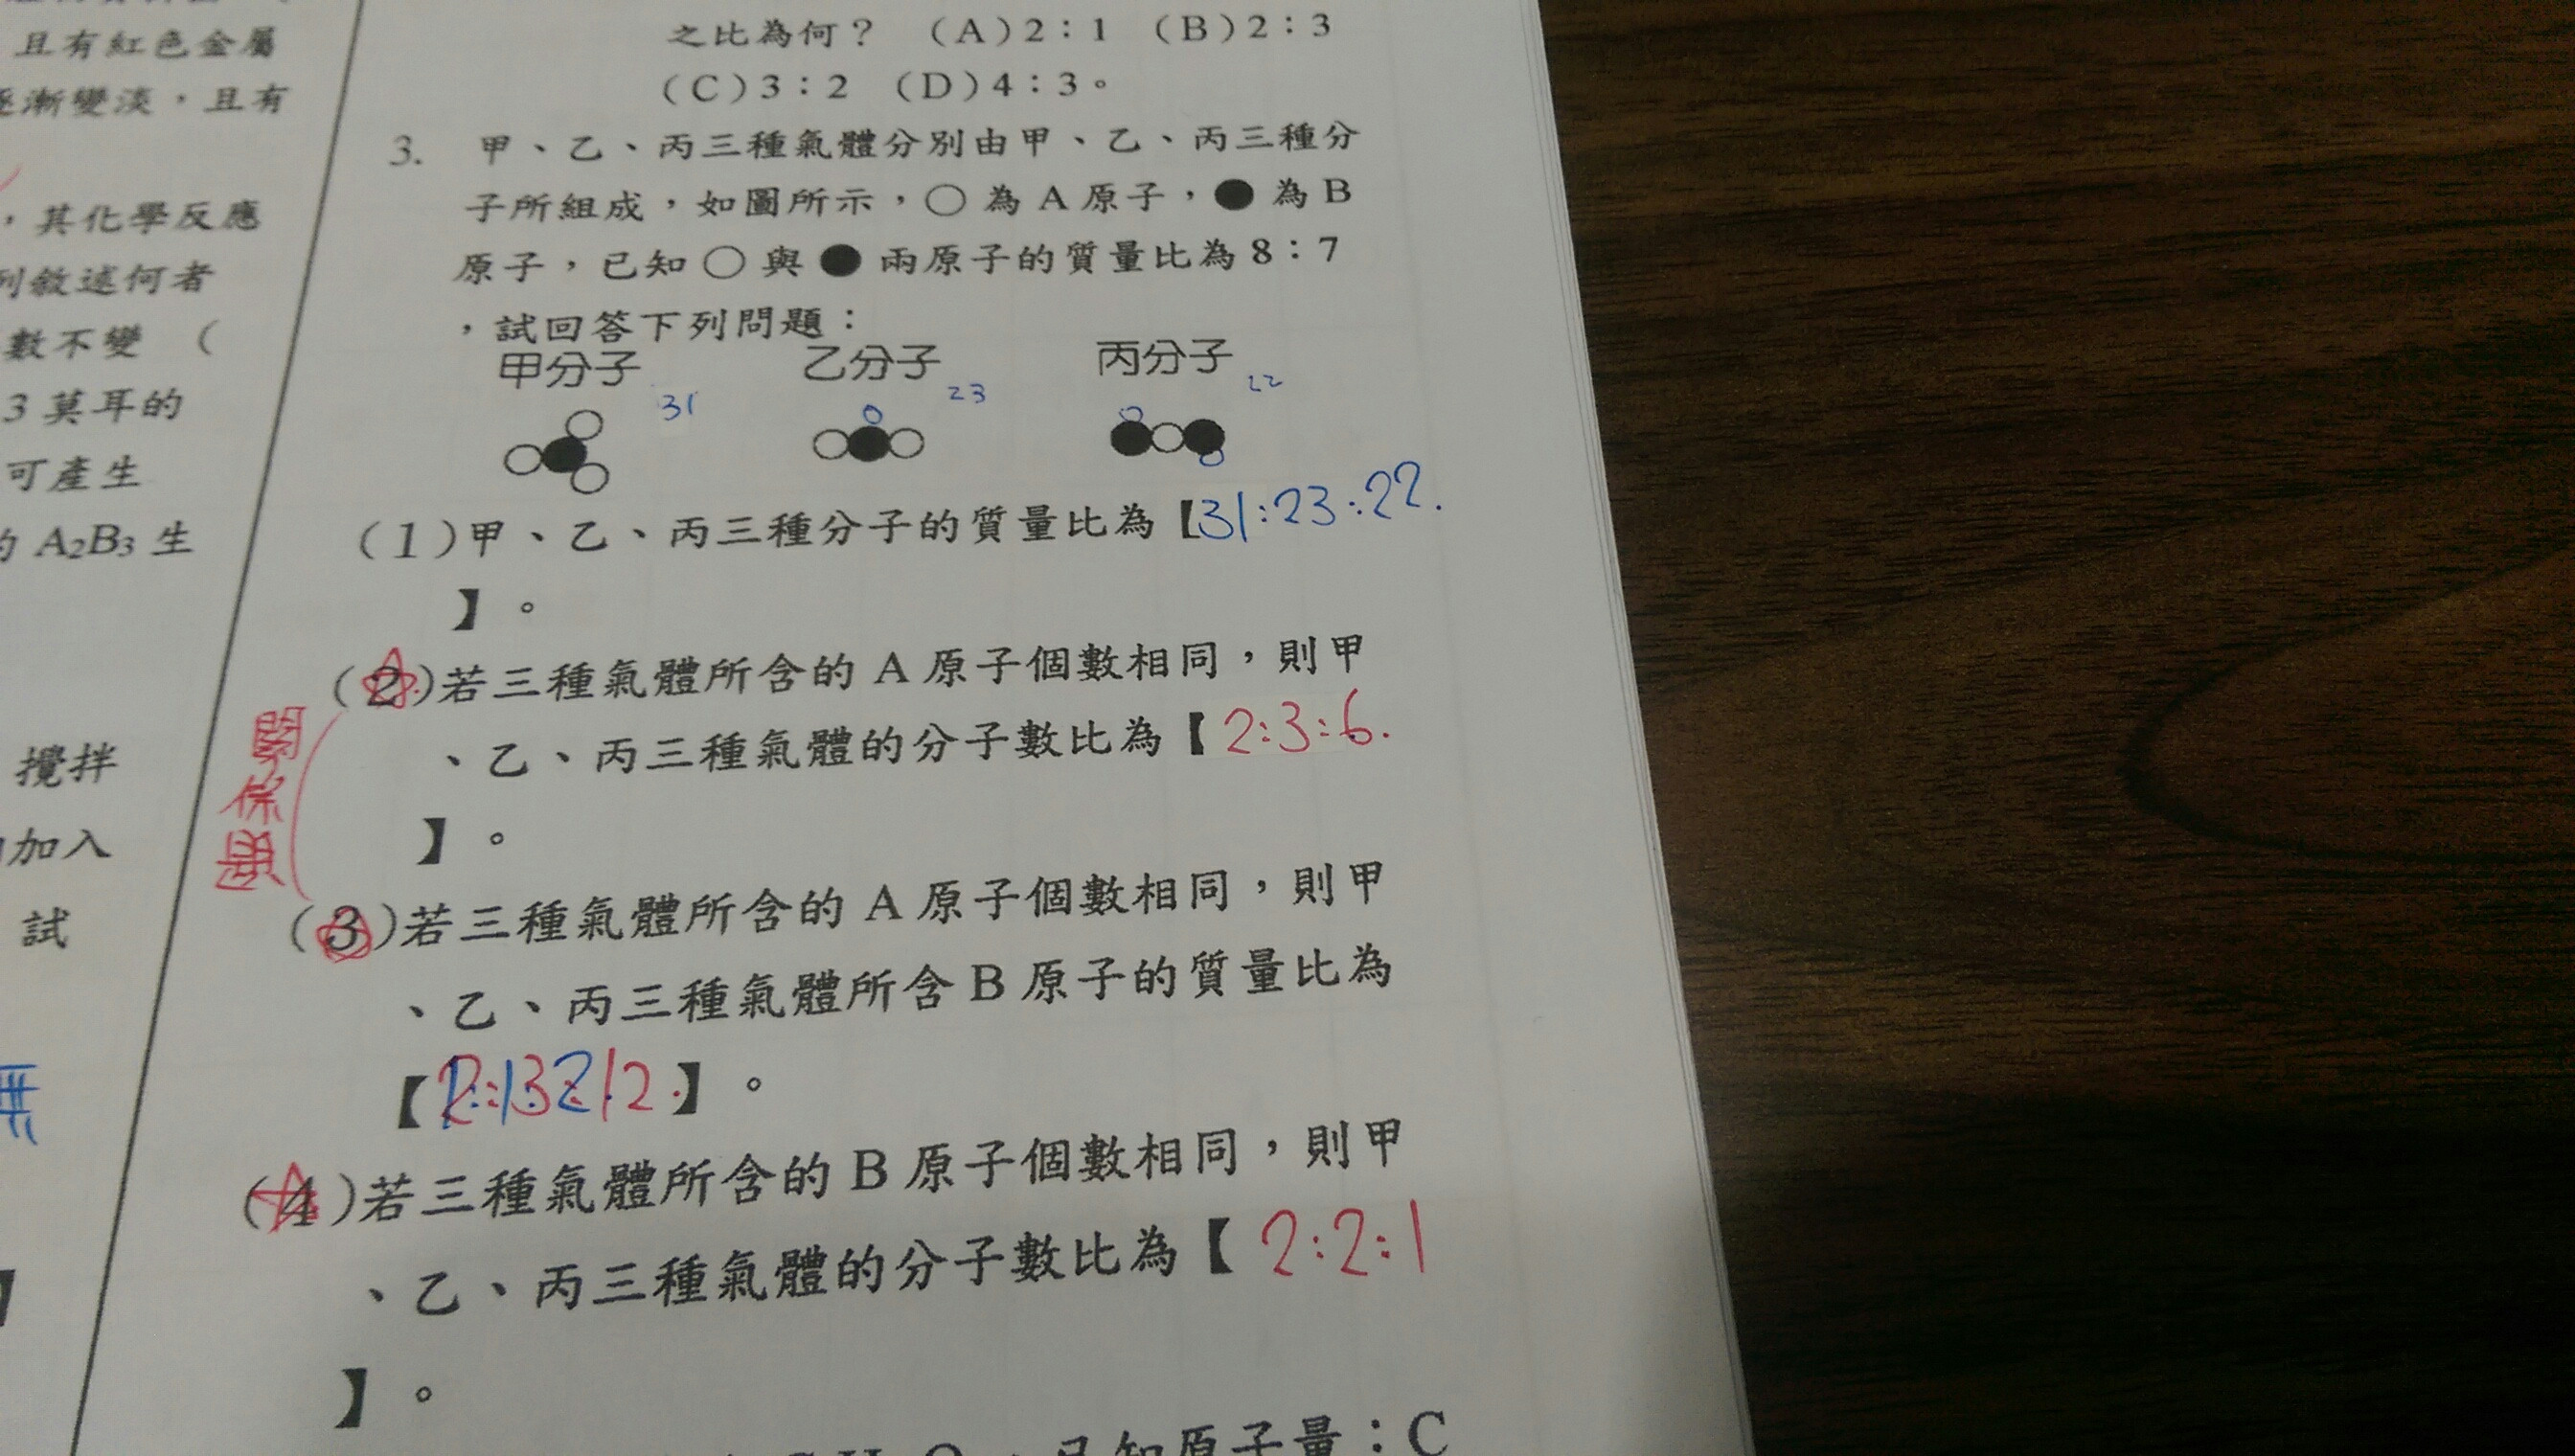 且有紅色金屬
逐漸變淡，且有
，其化學反應
列敘述何者
數不變 （
3 莫耳的
可產生
的 A₂B₃ 生
攪拌
加入
試
無
】
之比為何？ （A）2：1 （B）2：3
（C）3：2 （D）4：3。
3. 甲、乙、丙三種氣體分別由甲、乙、丙三種分
子所組成，如圖所示，○ 為 A 原子，● 為 B
原子，已知 ○ 與 ● 兩原子的質量比為 8：7
，試回答下列問題：
甲分子 乙分子 丙分子
31 23 22
8 8 8
（1）甲、乙、丙三種分子的質量比為【31:23:22.
】。
（2）若三種氣體所含的 A 原子個數相同，則甲
、乙、丙三種氣體的分子數比為【 2:3:6.
】。
關係題
（3）若三種氣體所含的 A 原子個數相同，則甲
、乙、丙三種氣體所含 B 原子的質量比為
【2:3:12.】。
（4）若三種氣體所含的 B 原子個數相同，則甲
、乙、丙三種氣體的分子數比為【 2:2:1
】。
已知原子量：C